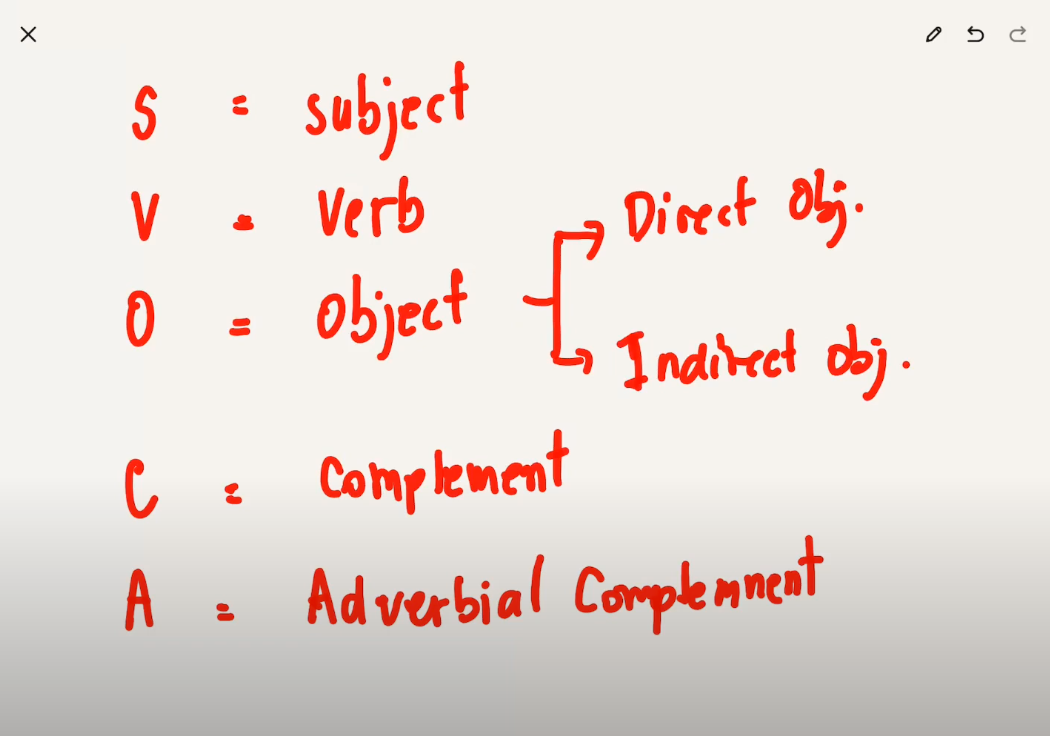 S = subject
V = Verb
O = Object
Direct Obj.
Indirect obj.
C = Complement
A = Adverbial Complement